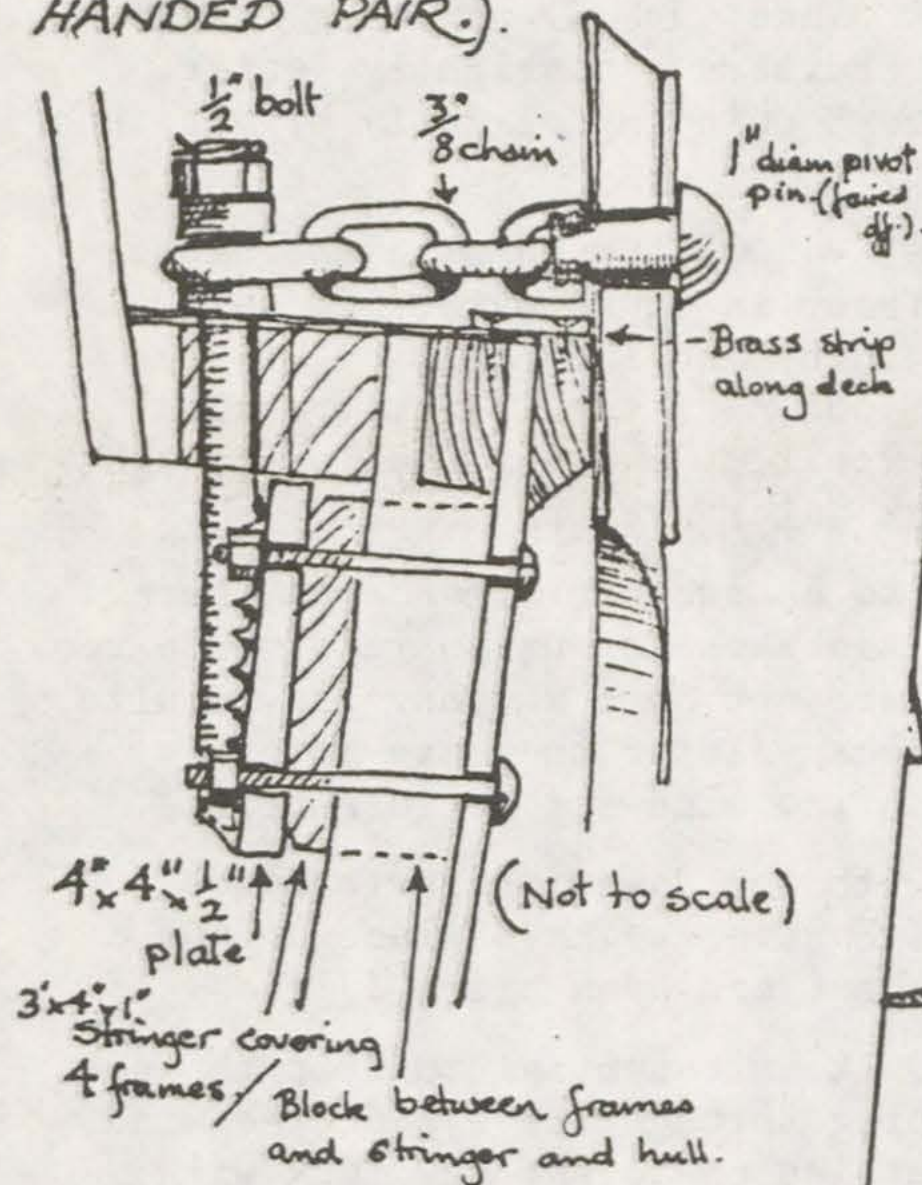 HANDED PAIR.).
1/2" bolt
3/8" chain
1" diam pivot
pin (faired
off.)
Brass strip
along deck
4" x 4" x 1/2"
plate
(Not to scale)
3' x 4" x 1"
Stringer covering
4 frames.
Block between frames
and stringer and hull.